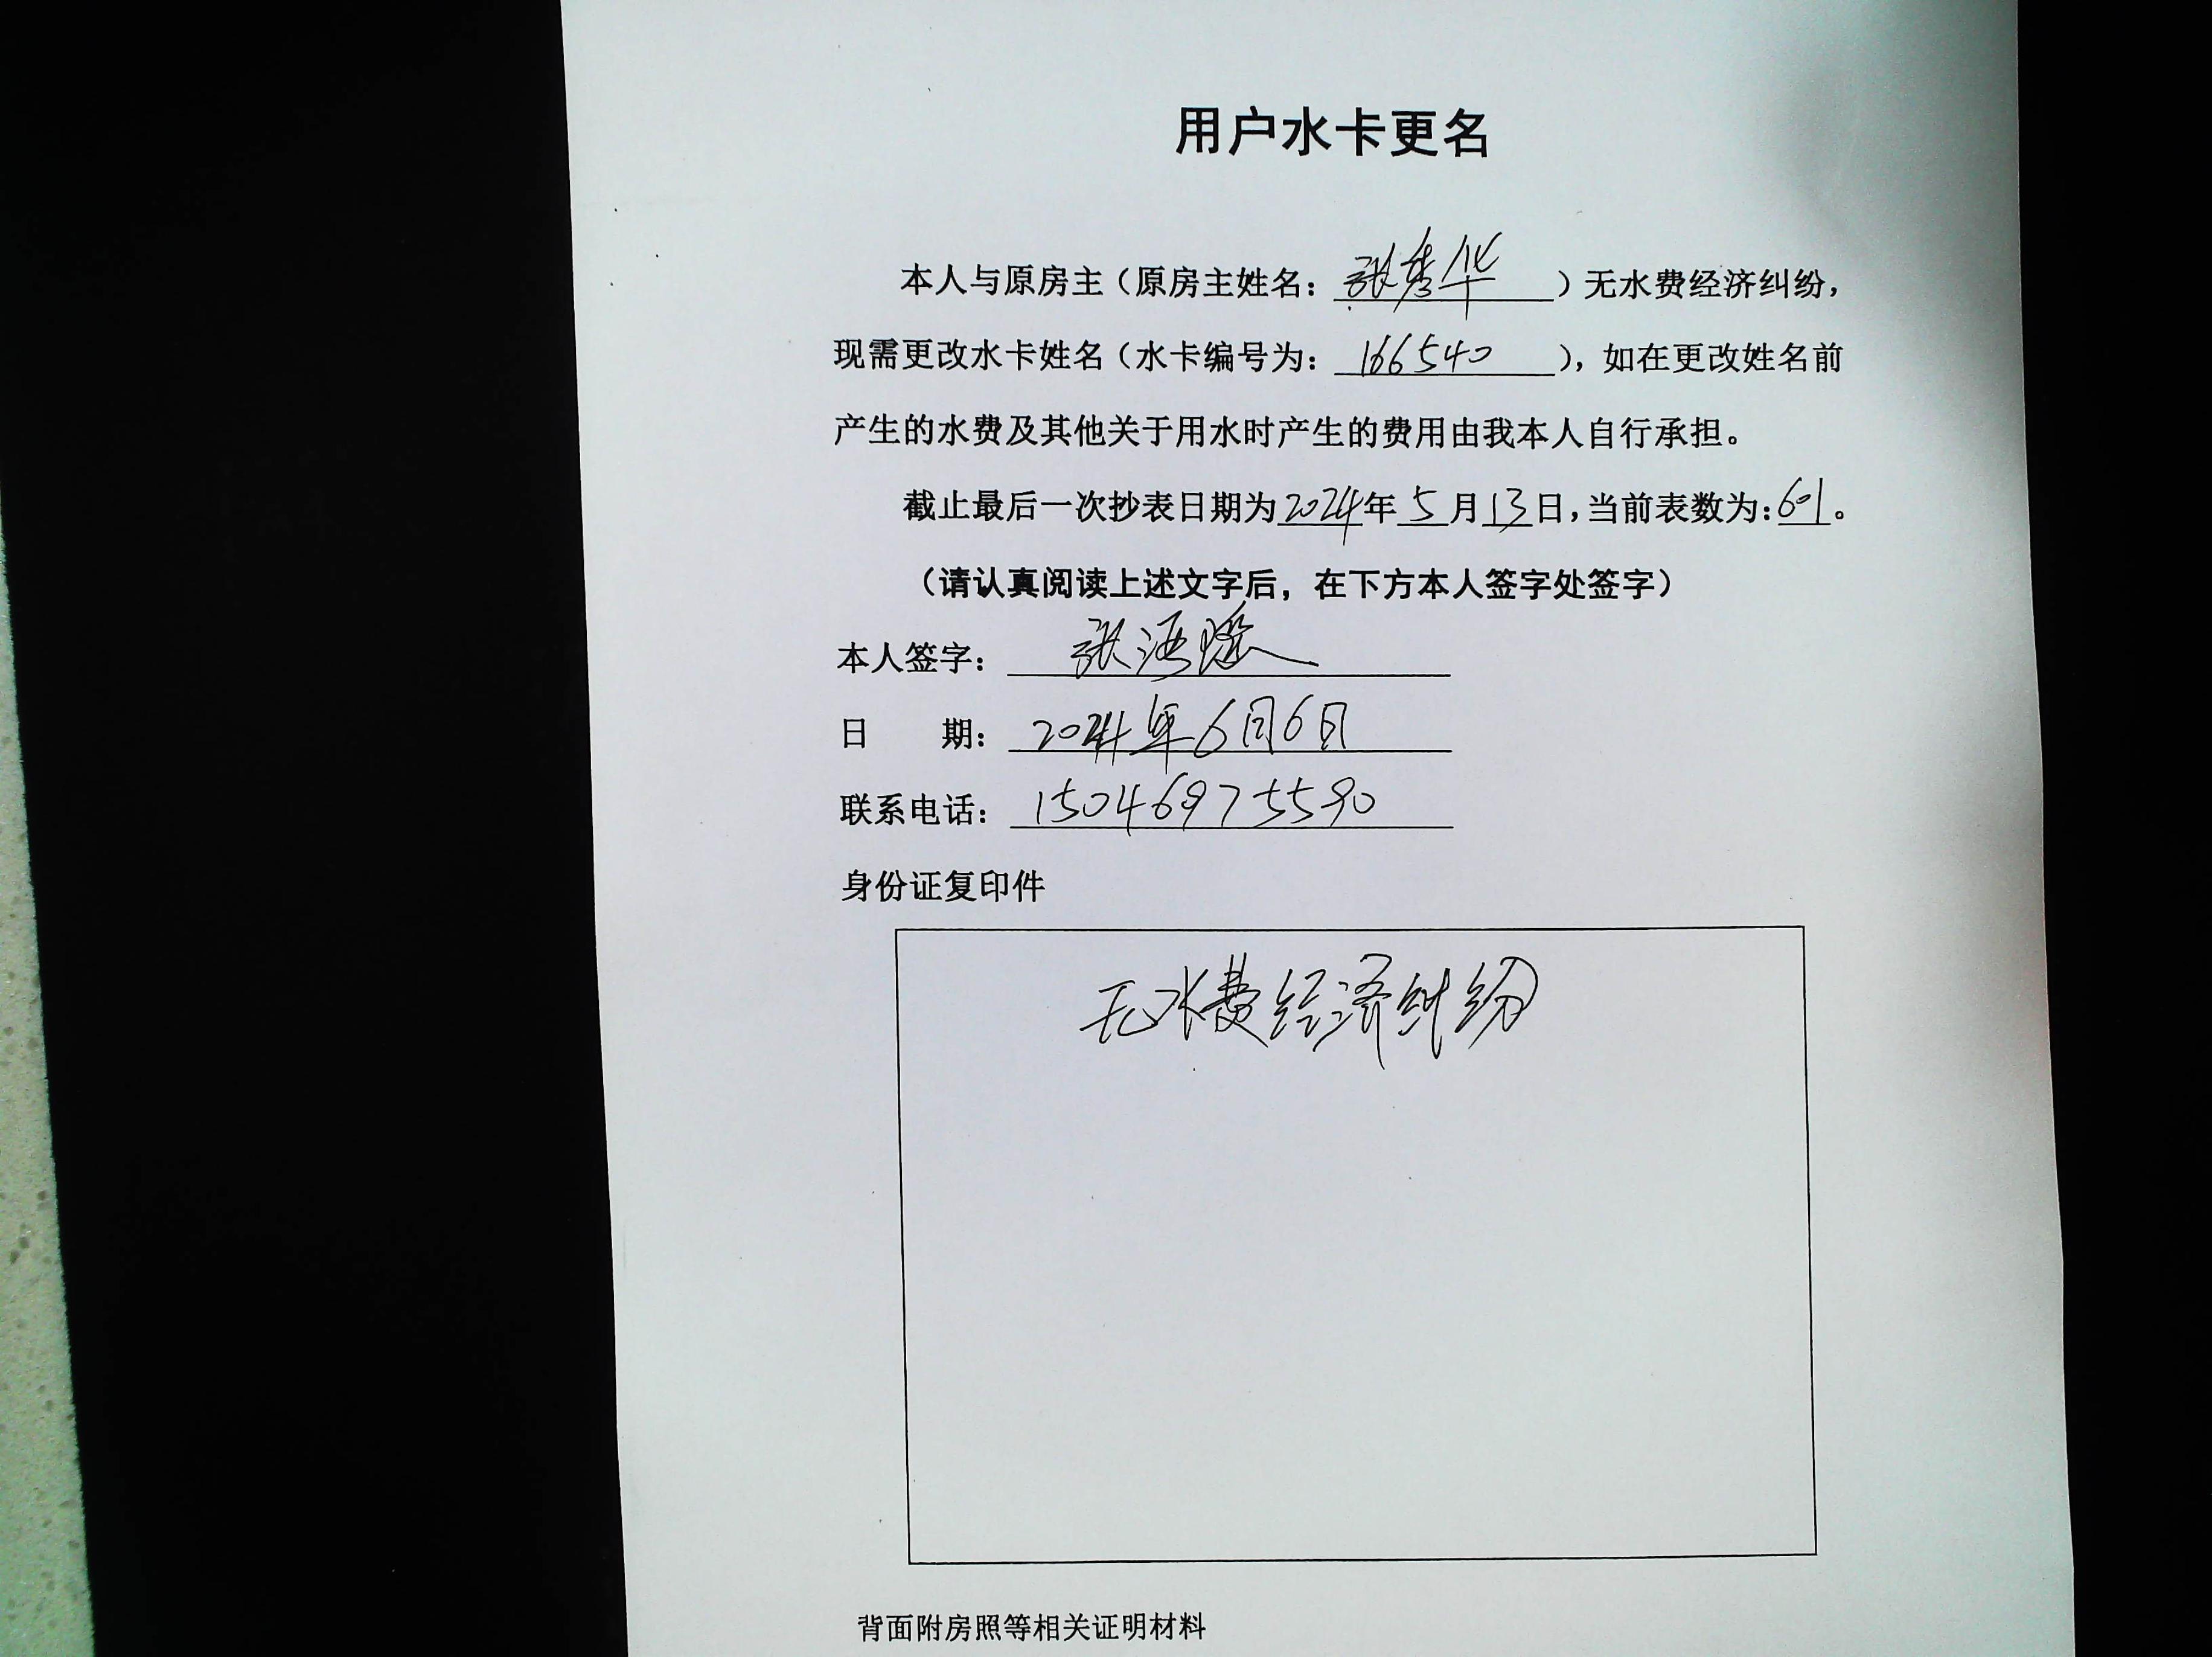 用户水卡更名
本人与原房主（原房主姓名：张秀华）无水费经济纠纷，
现需更改水卡姓名（水卡编号为：166540），如在更改姓名前
产生的水费及其他关于用水时产生的费用由我本人自行承担。
截止最后一次抄表日期为2024年5月13日，当前表数为：601。
（请认真阅读上述文字后，在下方本人签字处签字）
本人签字：张
日 期：2024年6月6日
联系电话：15046975590
身份证复印件
无水费经济纠纷
背面附房照等相关证明材料